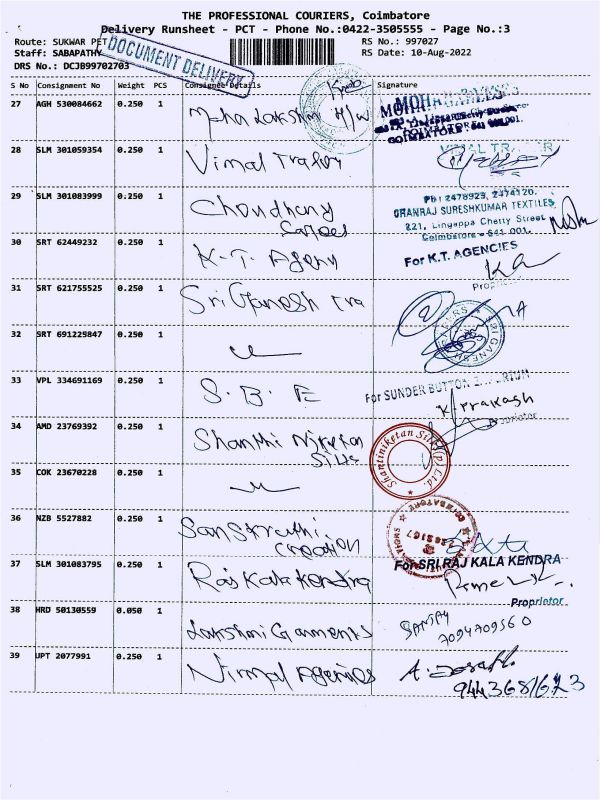 THE PROFESSIONAL COURIERS, Coimbatore
Delivery Runsheet - PCT - Phone No.:0422-3505555 - Page No.:3
Route: SUKWAR PET
RS No.: 997027
Staff: SABAPATHY
RS Date: 10-Aug-2022
DRS No.: DCJB99702703
DOCUMENT DELIVERY
S No Consignment No Weight PCS Consignee Details Signature
27 AGH 530084662 0.250 1 Maha Lakshmi H/W
COIMBATORE - 641 001.
28 SLM 301059354 0.250 1 Vimal
29 SLM 301083999 0.250 1 Choudhary
Sarees
Ph: 2478929, 2474120.
DHANRAJ SURESHKUMAR TEXTILES
221, Lingappa Chetty Street
Coimbatore - 641 001.
30 SRT 62449232 0.250 1 K.T. Agency
For K.T. AGENCIES
31 SRT 621755525 0.250 1 Sri Ganesh Tra
SRI GANESH
32 SRT 691225847 0.250 1
33 VPL 334691169 0.250 1 S. B. E
For SUNDER BUTTON
K. Prakash
Proprietor
34 AMD 23769392 0.250 1 Shanthi Niketan
Silks
Shantiniketan Silks (P) Ltd.
35 COK 23670228 0.250 1
36 NZB 5527882 0.250 1 Sanskruthi
Creation
COIMBATORE
37 SLM 301083795 0.250 1 Raj Kala Kendra
For SRI RAJ KALA KENDRA
Proprietor
38 HRD 50130559 0.050 1 Lakshmi Garments
SANJAY
7094709560
39 JPT 2077991 0.250 1 Nirmal Agencies
9443681673